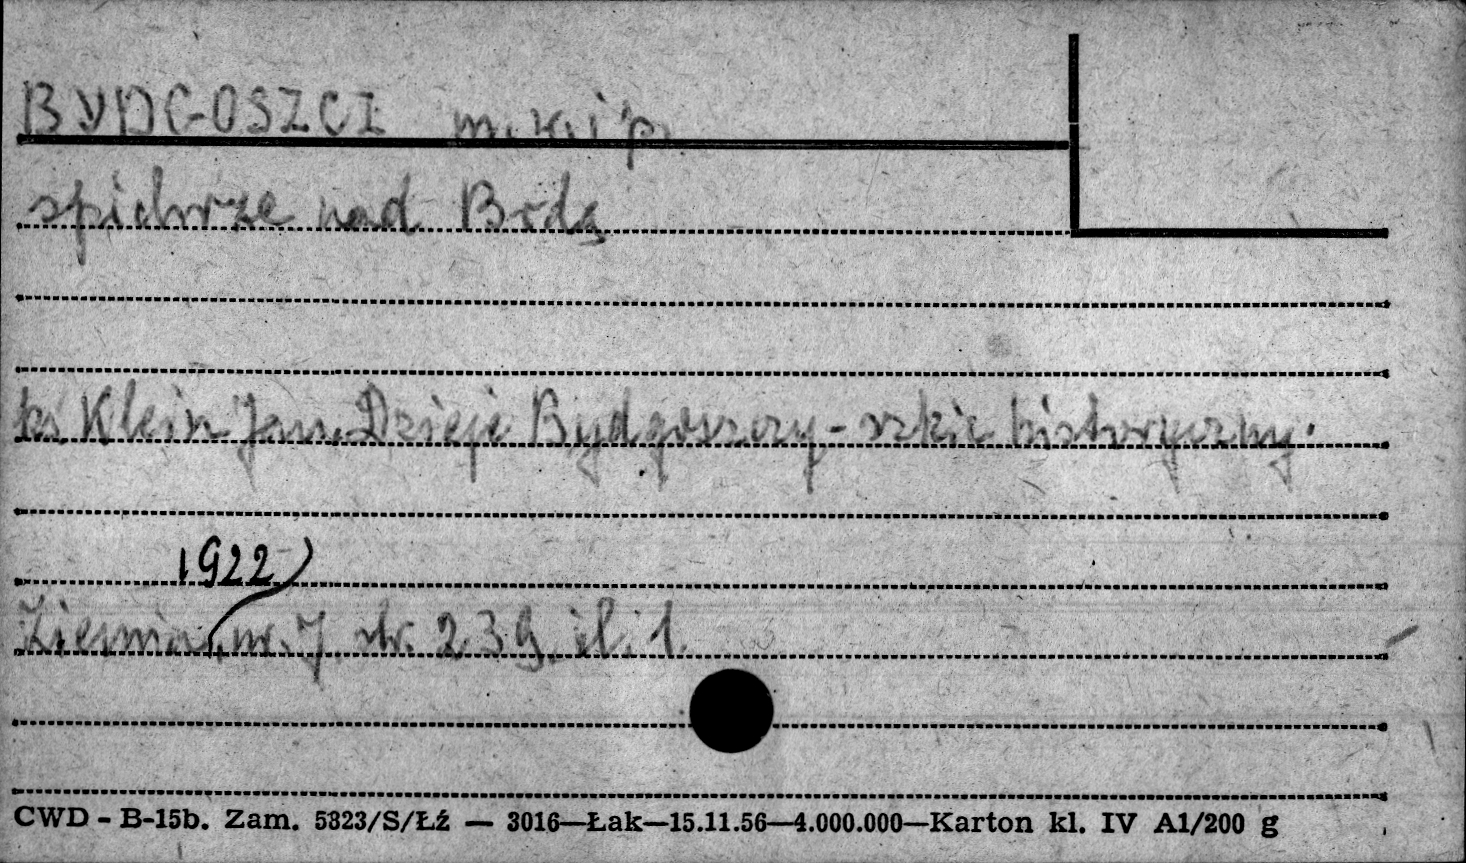 BYDGOSZCZ m. w. i p.
spichrze nad Brdą
ks. Klein Jan. Dzieje Bydgoszczy - szkic historyczny.
1922
Ziemia, nr. 7. str. 239. il. 1.
CWD - B-15b. Zam. 5323/S/Łź — 3016—Łak—15.11.56—4.000.000—Karton kl. IV A1/200 g